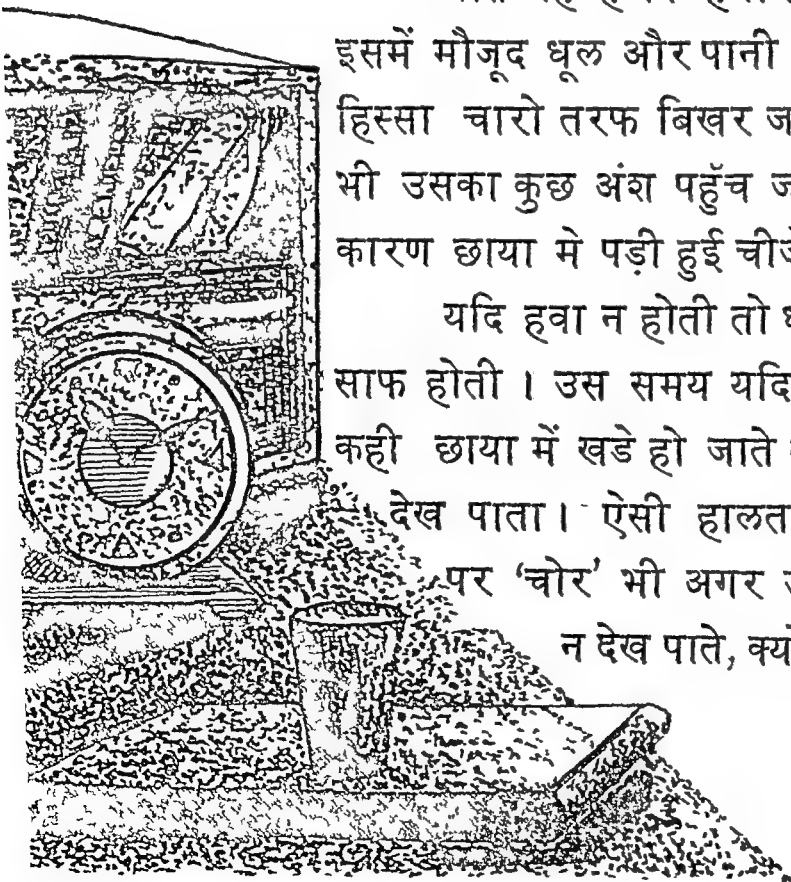 इसमें मौजूद धूल और पानी
हिस्सा चारो तरफ बिखर ज
भी उसका कुछ अंश पहुँच ज
कारण छाया मे पड़ी हुई चीजें
यदि हवा न होती तो ध
साफ होती । उस समय यदि
कही छाया में खडे हो जाते
देख पाता । ऐसी हालत
पर ‘चोर’ भी अगर उ
न देख पाते, क्यो